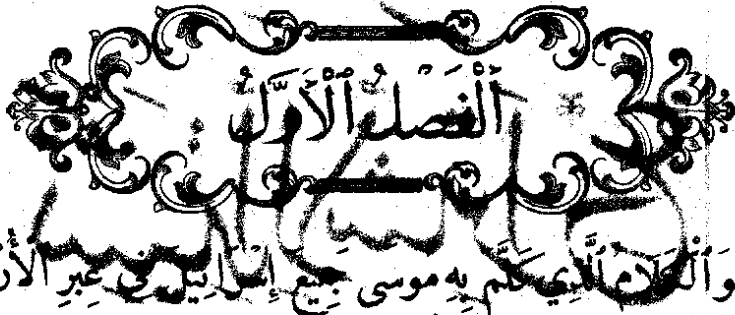 اَلْفَصْلُ ٱلْأَوَّلُ
وَٱلْكَلَامُ ٱلَّذِي كَلَّم بِهِ موسى جميع إِسْرَائِيل في عِبرِ